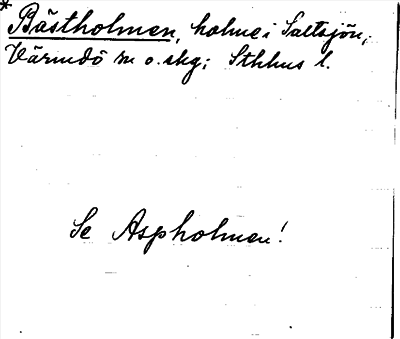 * Bästholmen, holme i Saltsjön,
Värmdö sn o. skg; Sthlms l.
Se Aspholmen!